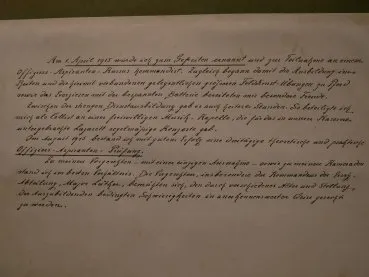 Am 1. April 1915 wurde ich zum Gefreiten ernannt und zur Teilnahme an einem
Offiziers-Aspiranten-Kursus kommandiert. Zugleich begann damit die Ausbildung
und der hiermit verbundenen gelegentlichen grossen Felddienst-Übungen zu Pferd
sowie das Exerzieren mit der bespannten Batterie bereiteten mir besondere Freude.
Zwischen der strengen Dienstausbildung gab es auch heitere Stunden. So beteiligte ich
mich als Cellist an einer freiwilligen Musik-Kapelle, die für das in unserer Kaserne
untergebrachte Lazarett regelmässige Konzerte gab.
Im August 1915 bestand ich mit gutem Erfolg eine dreitägige theoretische und praktische
Offiziers-Aspiranten-Prüfung.
Zu meinen Vorgesetzten, mit einer einzigen Ausnahme - sowie zu meinen Kameraden
stand ich im besten Verhältnis. Die Vorgesetzten, insbesondere der Kommandeur der
Abteilung, Major Lüther, bemühten sich, den durch verschiedenes Alter und Stellung
der Auszubildenden bedingten Schwierigkeiten in anerkennenswerter Weise gerecht
zu werden.